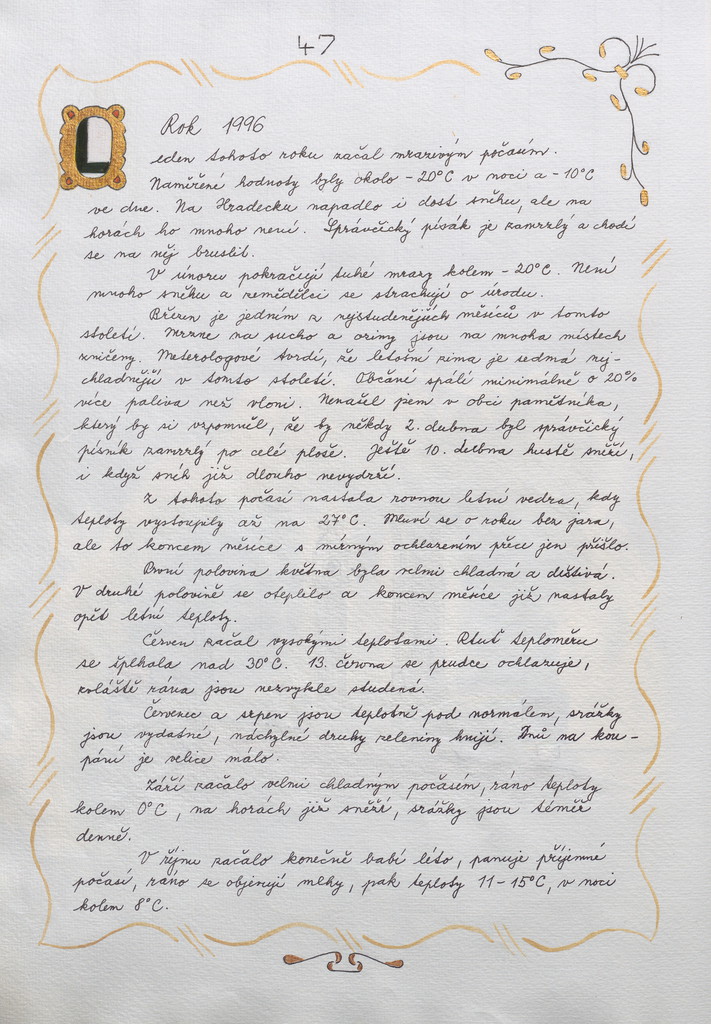 47
Rok 1996
Leden tohoto roku začal mrazivým počasím.
Naměřené hodnoty byly okolo -20°C v noci a -10°C
ve dne. Na Hradecku napadlo i dost sněhu, ale na
horách ho mnoho není. Správčický písák je zamrzlý a chodí
se na něj bruslit.
V únoru pokračují tuhé mrazy kolem -20°C. Není
mnoho sněhu a zemědělci se strachují o úrodu.
Březen je jedním z nejstudenějších měsíců v tomto
století. Mrzne na sucho a oziny jsou na mnoha místech
zničeny. Meterologové tvrdí, že letošní zima je sedmá nej-
chladnější v tomto století. Občané spálí minimálně o 20%
více paliva než vloni. Nenašel jsem v obci pamětníka,
který by si vzpomněl, že by někdy 2. dubna byl správčický
písník zamrzlý po celé ploše. Ještě 10. dubna hustě sněží,
i když sníh již dlouho nevydrží.
Z tohoto počasí nastala rovnou letní vedra, kdy
teploty vystoupily až na 27°C. Mluví se o roku bez jara,
ale to koncem měsíce s mírným ochlazením přece jen přišlo.
První polovina května byla velmi chladná a deštivá.
V druhé polovině se oteplilo a koncem měsíce již nastaly
opět letní teploty.
Červen začal vysokými teplotami. Rtuť teploměru
se šplhala nad 30°C. 13. června se prudce ochlazuje,
zvláště rána jsou nezvykle studená.
Červenec a srpen jsou teplotně pod normálem, srážky
jsou vydatné, náchylné druhy zeleniny hnijí. Dnů na kou-
pání je velice málo.
Září začalo velmi chladným počasím, ráno teploty
kolem 0°C, na horách již sněží, srážky jsou téměř
denně.
V říjnu začalo konečně babí léto, panuje příjemné
počasí, ráno se objevují mlhy, pak teploty 11-15°C, v noci
kolem 8°C.